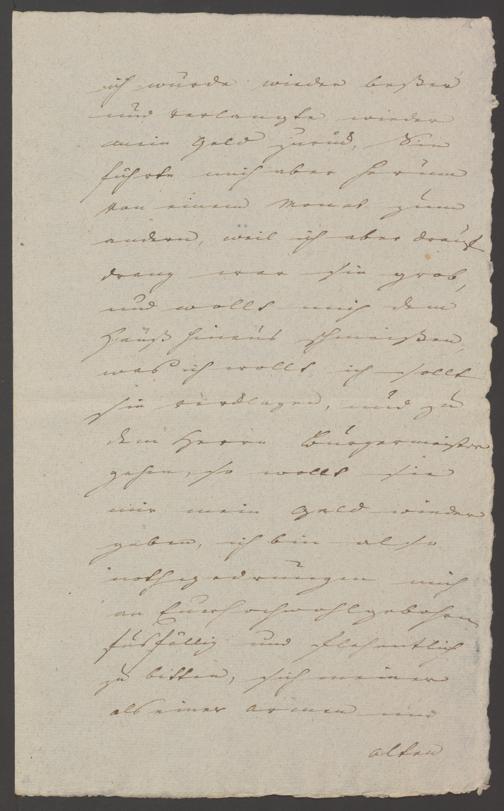 ich würde wieder beßer
und verlangte wieder
mein Geld zurück, Sie
führte mich aber herum
von einem Monat zum
andern, weil ich aber drauf
drang war sie grob,
und wollt mich dem
Hauß hinaus schmeißen,
was ich wollt ich sollt
sie verklagen, und zu
dem Herrn Bürgermeister
gehen, so wollt sie
mir mein Geld wieder
geben, ich bin also
nothgedrungen mich
an Eurhochwohlgebohren
fusfällig und flehentlich
zu bitten, sich meiner
als einer armen und
alten